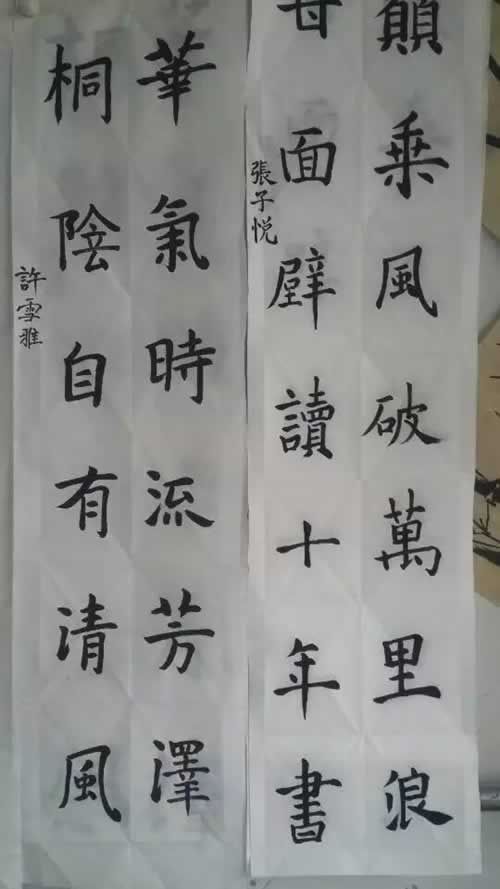 願乘風破萬里浪
甘面壁讀十年書
張子悦
華氣時流芳澤
桐陰自有清風
許雪雅